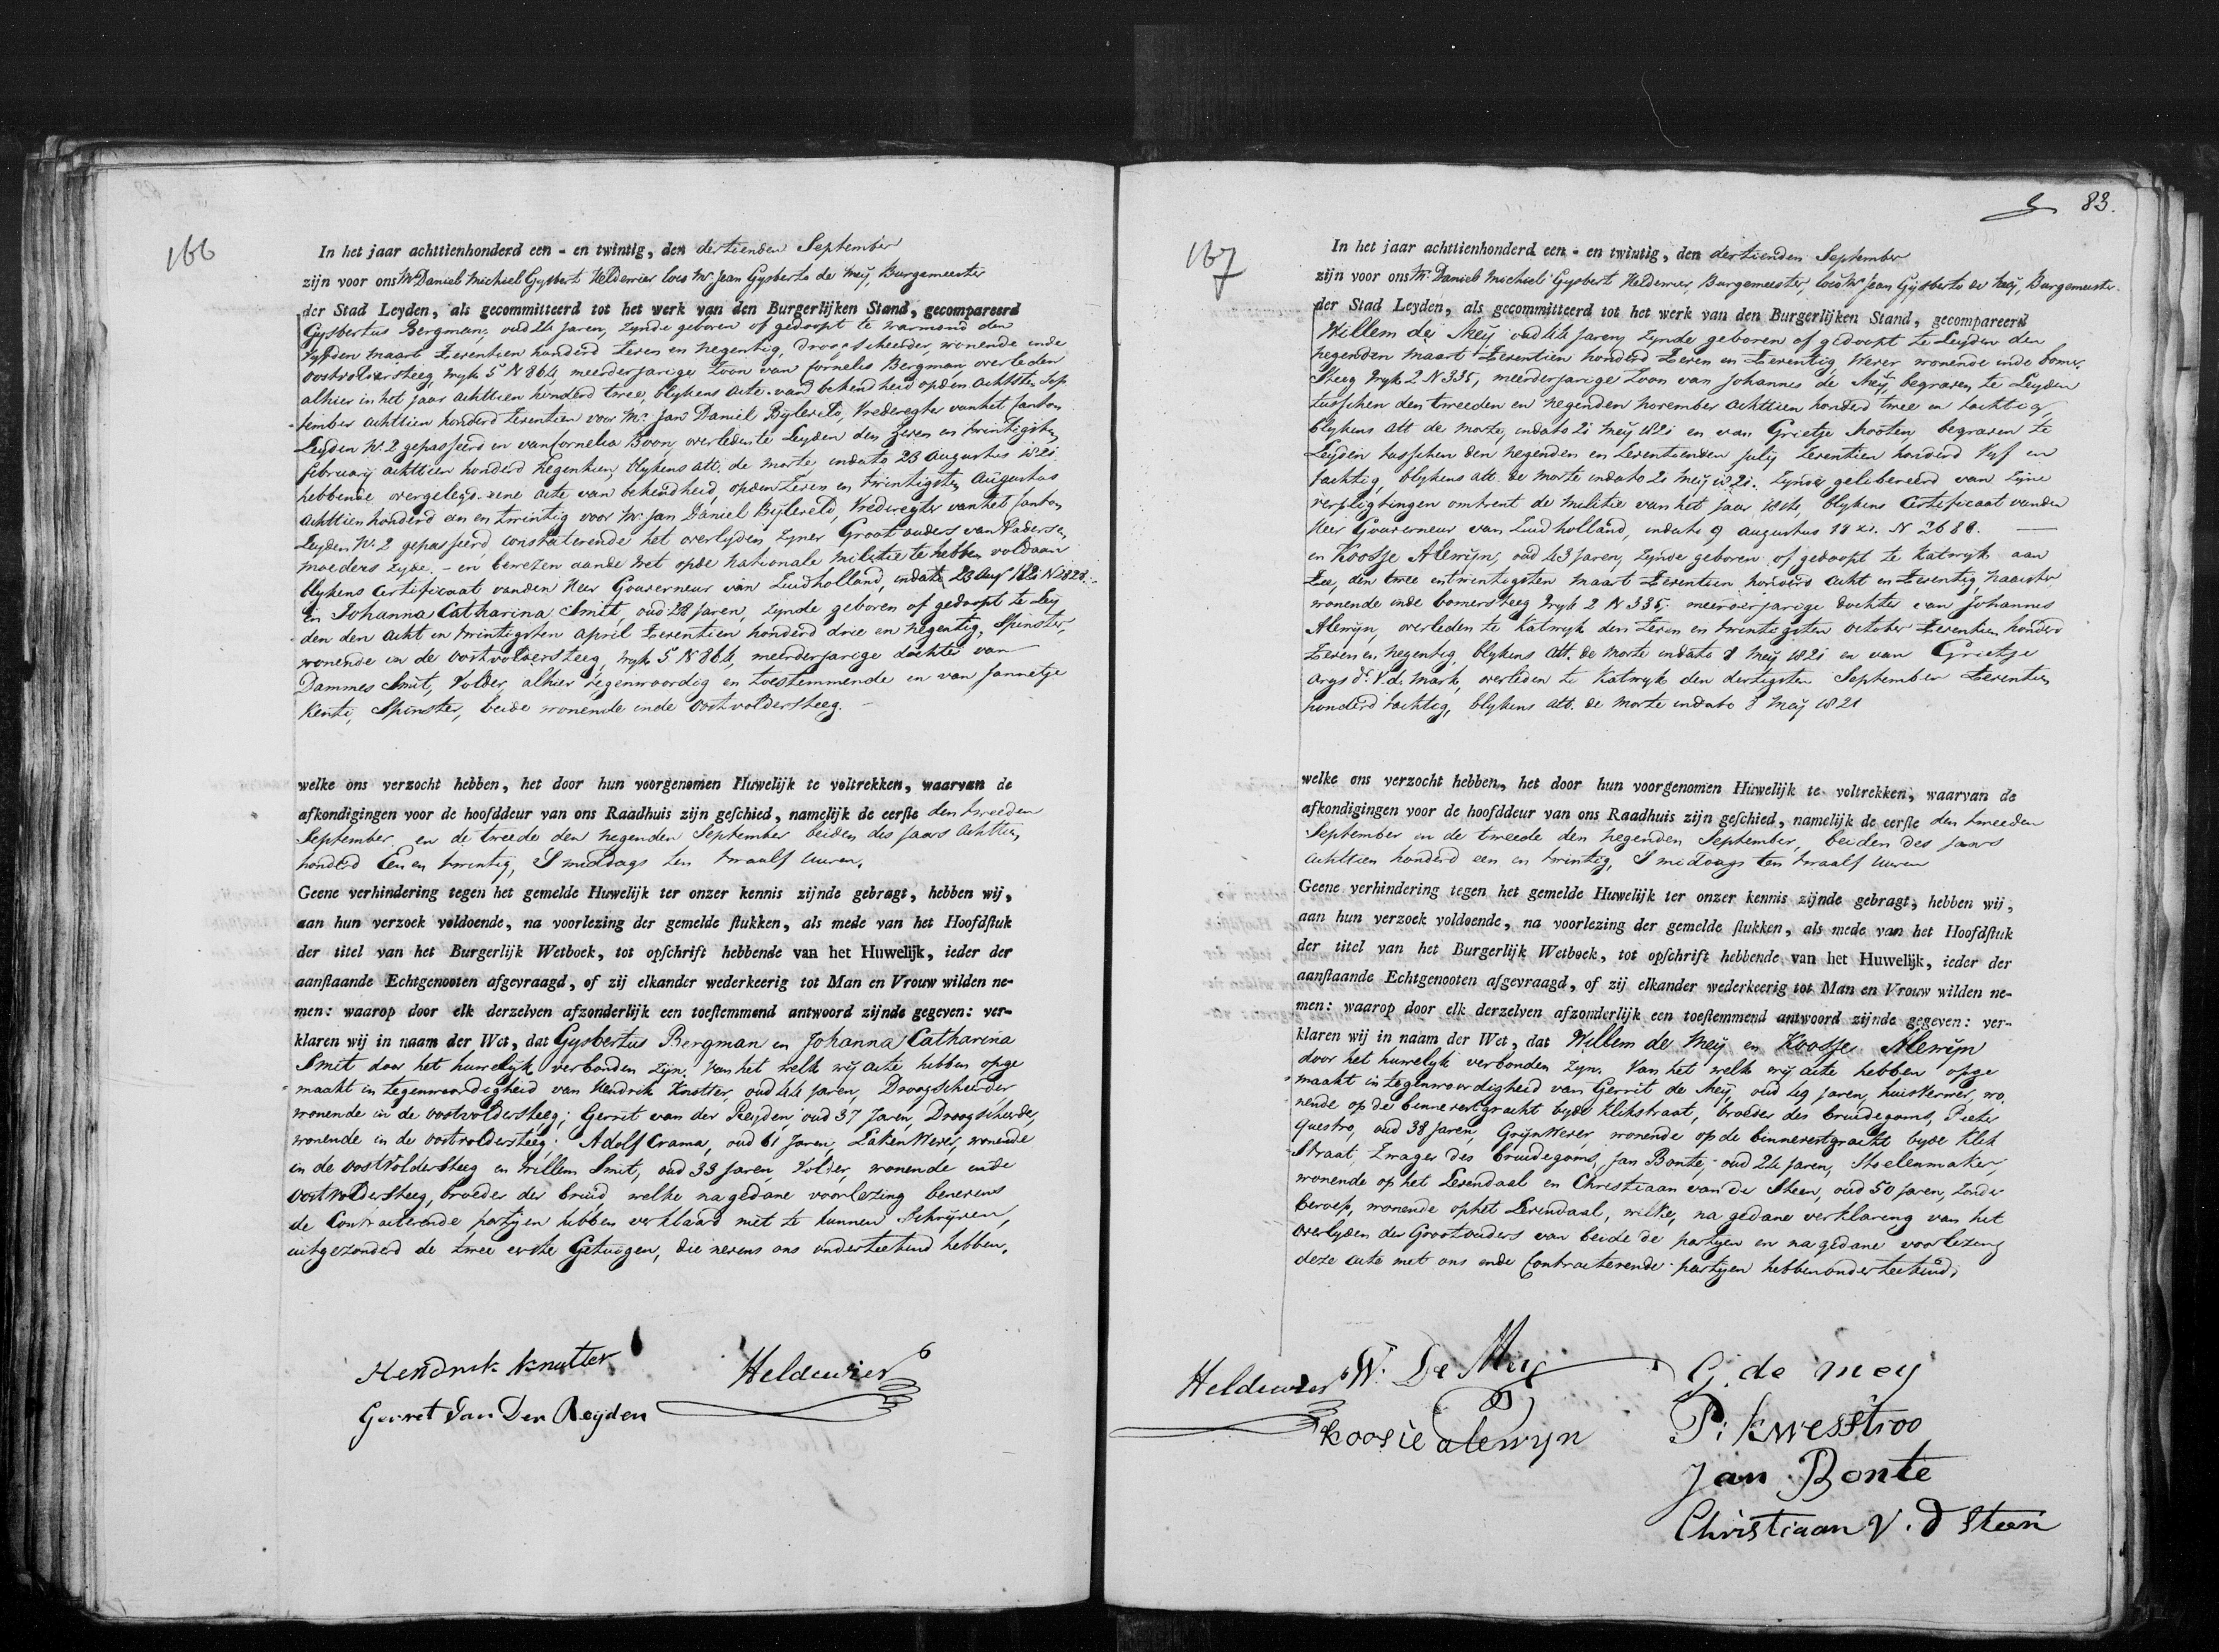 166
In het jaar achttienhonderd een - en twintig, den dertienden September
zijn voor ons Mr Daniel Michiel Gysbert Heldewier loco Mr Jean Gysberto de Meij, Burgemeester
der Stad Leyden, als gecommitteerd tot het werk van den Burgerlijken Stand, gecompareerd
Gysbertus Bergman, oud 24 jaren, zynde geboren of gedoopt te warmond den
vyfden maart Zeventien honderd Zeven en negentig, droogscheerder, wonende inde
oostvoldersteeg wyk 5 N 864 meerderjarige Zoon van Cornelis Bergman, overleden
alhier in het jaar achttien honderd twee, blykens acte van bekendheid op den achtsten Sep
tember achttien honderd Zeventien voor Mr. Jan Daniel Byleveld, Vrederegter van het Canton
Leyden No. 2 gepasseerd en van Cornelia Boon, overleden te Leyden den Zeven en twintigsten
february achttien honderd negentien, blykens att. de morte indato 23 Augustus 1821
hebbende overgelegd eene acte van bekendheid, op den Zeven en twintigsten Augustus
achttien honderd een en twintig voor Mr. Jan Daniel Byleveld, Vrederegter van het Canton
Leyden No. 2 gepasseerd, constaterende het overlyden zyner Groot ouders van Vaders en
moeders zyde. - en bewezen aande Wet opde Nationale Militie te hebben voldaan
blykens Certificaat vanden Heer Gouverneur van Zuidholland, indato 23 Aug 1821 N 2828.
en Johanna Catharina Smit, oud 28 jaren, zynde geboren of gedoopt te Ley
den den acht en twintigsten april Zeventien honderd drie en negentig, Spinster,
wonende in de oostvoldersteeg, wyk 5 N 864, meerderjarige dochter van
Dammes Smit, Volder, alhier tegenwoordig en toestemmende en van Jannetje
Kenti, Spinster, beide wonende inde Oostvoldersteeg.
welke ons verzocht hebben, het door hun voorgenomen Huwelijk te voltrekken, waarvan de
afkondigingen voor de hoofddeur van ons Raadhuis zijn geschied, namelijk de eerste den tweeden
September en de tweede den negenden September beiden des jaars achttien
honderd Een en twintig, S'middags ten twaalf uuren.
Geene verhindering tegen het gemelde Huwelijk ter onzer kennis zijnde gebragt, hebben wij,
aan hun verzoek voldoende, na voorlezing der gemelde stukken, als mede van het Hoofdstuk
der titel van het Burgerlijk Wetboek, tot opschrift hebbende van het Huwelijk, ieder der
aanstaande Echtgenooten afgevraagd, of zij elkander wederkeerig tot Man en Vrouw wilden ne-
men: waarop door elk derzelven afzonderlijk een toestemmend antwoord zijnde gegeven: ver-
klaren wij in naam der Wet, dat Gysbertus Bergman en Johanna Catharina
Smit door het huwelyk verbonden zyn. Van het welk wij acte hebben opge
maakt in tegenwoordigheid van Hendrik Knotter, oud 44 jaren, Droogscheerder
wonende in de oostvoldersteeg; Gerrit van der Reyden, oud 37 jaren, Droogscheerder,
wonende in de oostvoldersteeg; Adolf Crama, oud 61 jaren, Laken Wever, wonende
in de oostvoldersteeg en Willem Smit, oud 33 jaren, Volder, wonende inde
oostvoldersteeg, broeder der bruid, welke na gedane voorlezing benevens
de Contracterende partyen hebben verklaard niet te kunnen Schryven,
uitgezonderd de twee eerste Getuigen, die nevens ons onderteekend hebben.
Hendrik Knotter
Heldewier
Gerret Van Der Reyden
83.
167
In het jaar achttienhonderd een - en twintig, den dertienden September
zijn voor ons Mr. Daniel Michiel Gysbert Heldewier, Burgemeester, loco Mr Jean Gysberto de Meij, Burgemeester
der Stad Leyden, als gecommitteerd tot het werk van den Burgerlijken Stand, gecompareerd
Willem de Meij oud 44 jaren, zynde geboren of gedoopt te Leyden den
negenden Maart Zeventien honderd Zeven en Zeventig, Wever, wonende inde bomer
Steeg Wyk 2 N 335, meerderjarige Zoon van Johannes de Meij, begraven te Leyden
tusschen den tweeden en negenden November achttien honderd twee en tachtig,
blykens att de morte, indato 21 Meij 1821 en van Grietje Mooten, begraven te
Leyden tusschen den negenden en Zeventienden july Zeventien honderd Vyf en
tachtig, blykens att. de morte indato 21 Meij 1821. Zynde gelibereerd van Zyne
verpligtingen omtrent de Militie van het jaar 1814, blykens Certificaat vanden
Heer Gouverneur van Zuidholland, indato 9 augustus 1821. N 2688.
en Koosje Alewijn, oud 43 jaren, zynde geboren of gedoopt te Katwyk aan
Zee, den twee entwintigsten maart Zeventien honderd acht en Zeventig, Naaister
wonende inde bomersteeg Wyk 2 N 335, meerderjarige dochter van Johannes
Alewijn, overleden te Katwyk den Zeven en twintigsten october Zeventien honderd
Zeven en negentig, blykens att. de morte indato 8 Meij 1821 en van Grietje
Arysdr. V.d. Mark, overleden te Katwyk den dertigsten September Zeventien
honderd tachtig, blykens att. de morte indato 8 Meij 1821
welke ons verzocht hebben, het door hun voorgenomen Huwelijk te voltrekken, waarvan de
afkondigingen voor de hoofddeur van ons Raadhuis zijn geschied, namelijk de eerste den tweeden
September en de tweede den negenden September, beiden des jaars
achttien honderd een en twintig, S'middags ten twaalf uuren
Geene verhindering tegen het gemelde Huwelijk ter onzer kennis zijnde gebragt, hebben wij,
aan hun verzoek voldoende, na voorlezing der gemelde stukken, als mede van het Hoofdstuk
der titel van het Burgerlijk Wetboek, tot opschrift hebbende van het Huwelijk, ieder der
aanstaande Echtgenooten afgevraagd, of zij elkander wederkeerig tot Man en Vrouw wilden ne-
men: waarop door elk derzelven afzonderlijk een toestemmend antwoord zijnde gegeven: ver-
klaren wij in naam der Wet, dat Willem de Meij en Koosje Alewijn
door het huwelyk verbonden zyn. Van het welk wij acte hebben opge
maakt in tegenwoordigheid van Gerrit de Meij, oud 49 jaren, huisverwer, wo
nende op de binnevestgracht byde Klikstraat, broeder des bruidegoms, Pieter
Questro, oud 38 jaren, Greijn Wever, wonende op de binnevestgracht byde Klik
Straat, Zwager des bruidegoms, Jan Bonte, oud 24 jaren, Stoelenmaker,
wonende op het Levendaal en Christiaan van de Steen, oud 50 jaren, zonder
beroep, wonende op het Levendaal, welke, na gedane verklaring van het
overlyden der Grootouders van beide de partyen en na gedane voorlezing
deze acte met ons ende Contracterende partyen hebben onderteekend.
Heldewier W. De Mey G. de mey
koosie alewyn P: kwesstroo
Jan Bonte
Christiaan V. d Steen